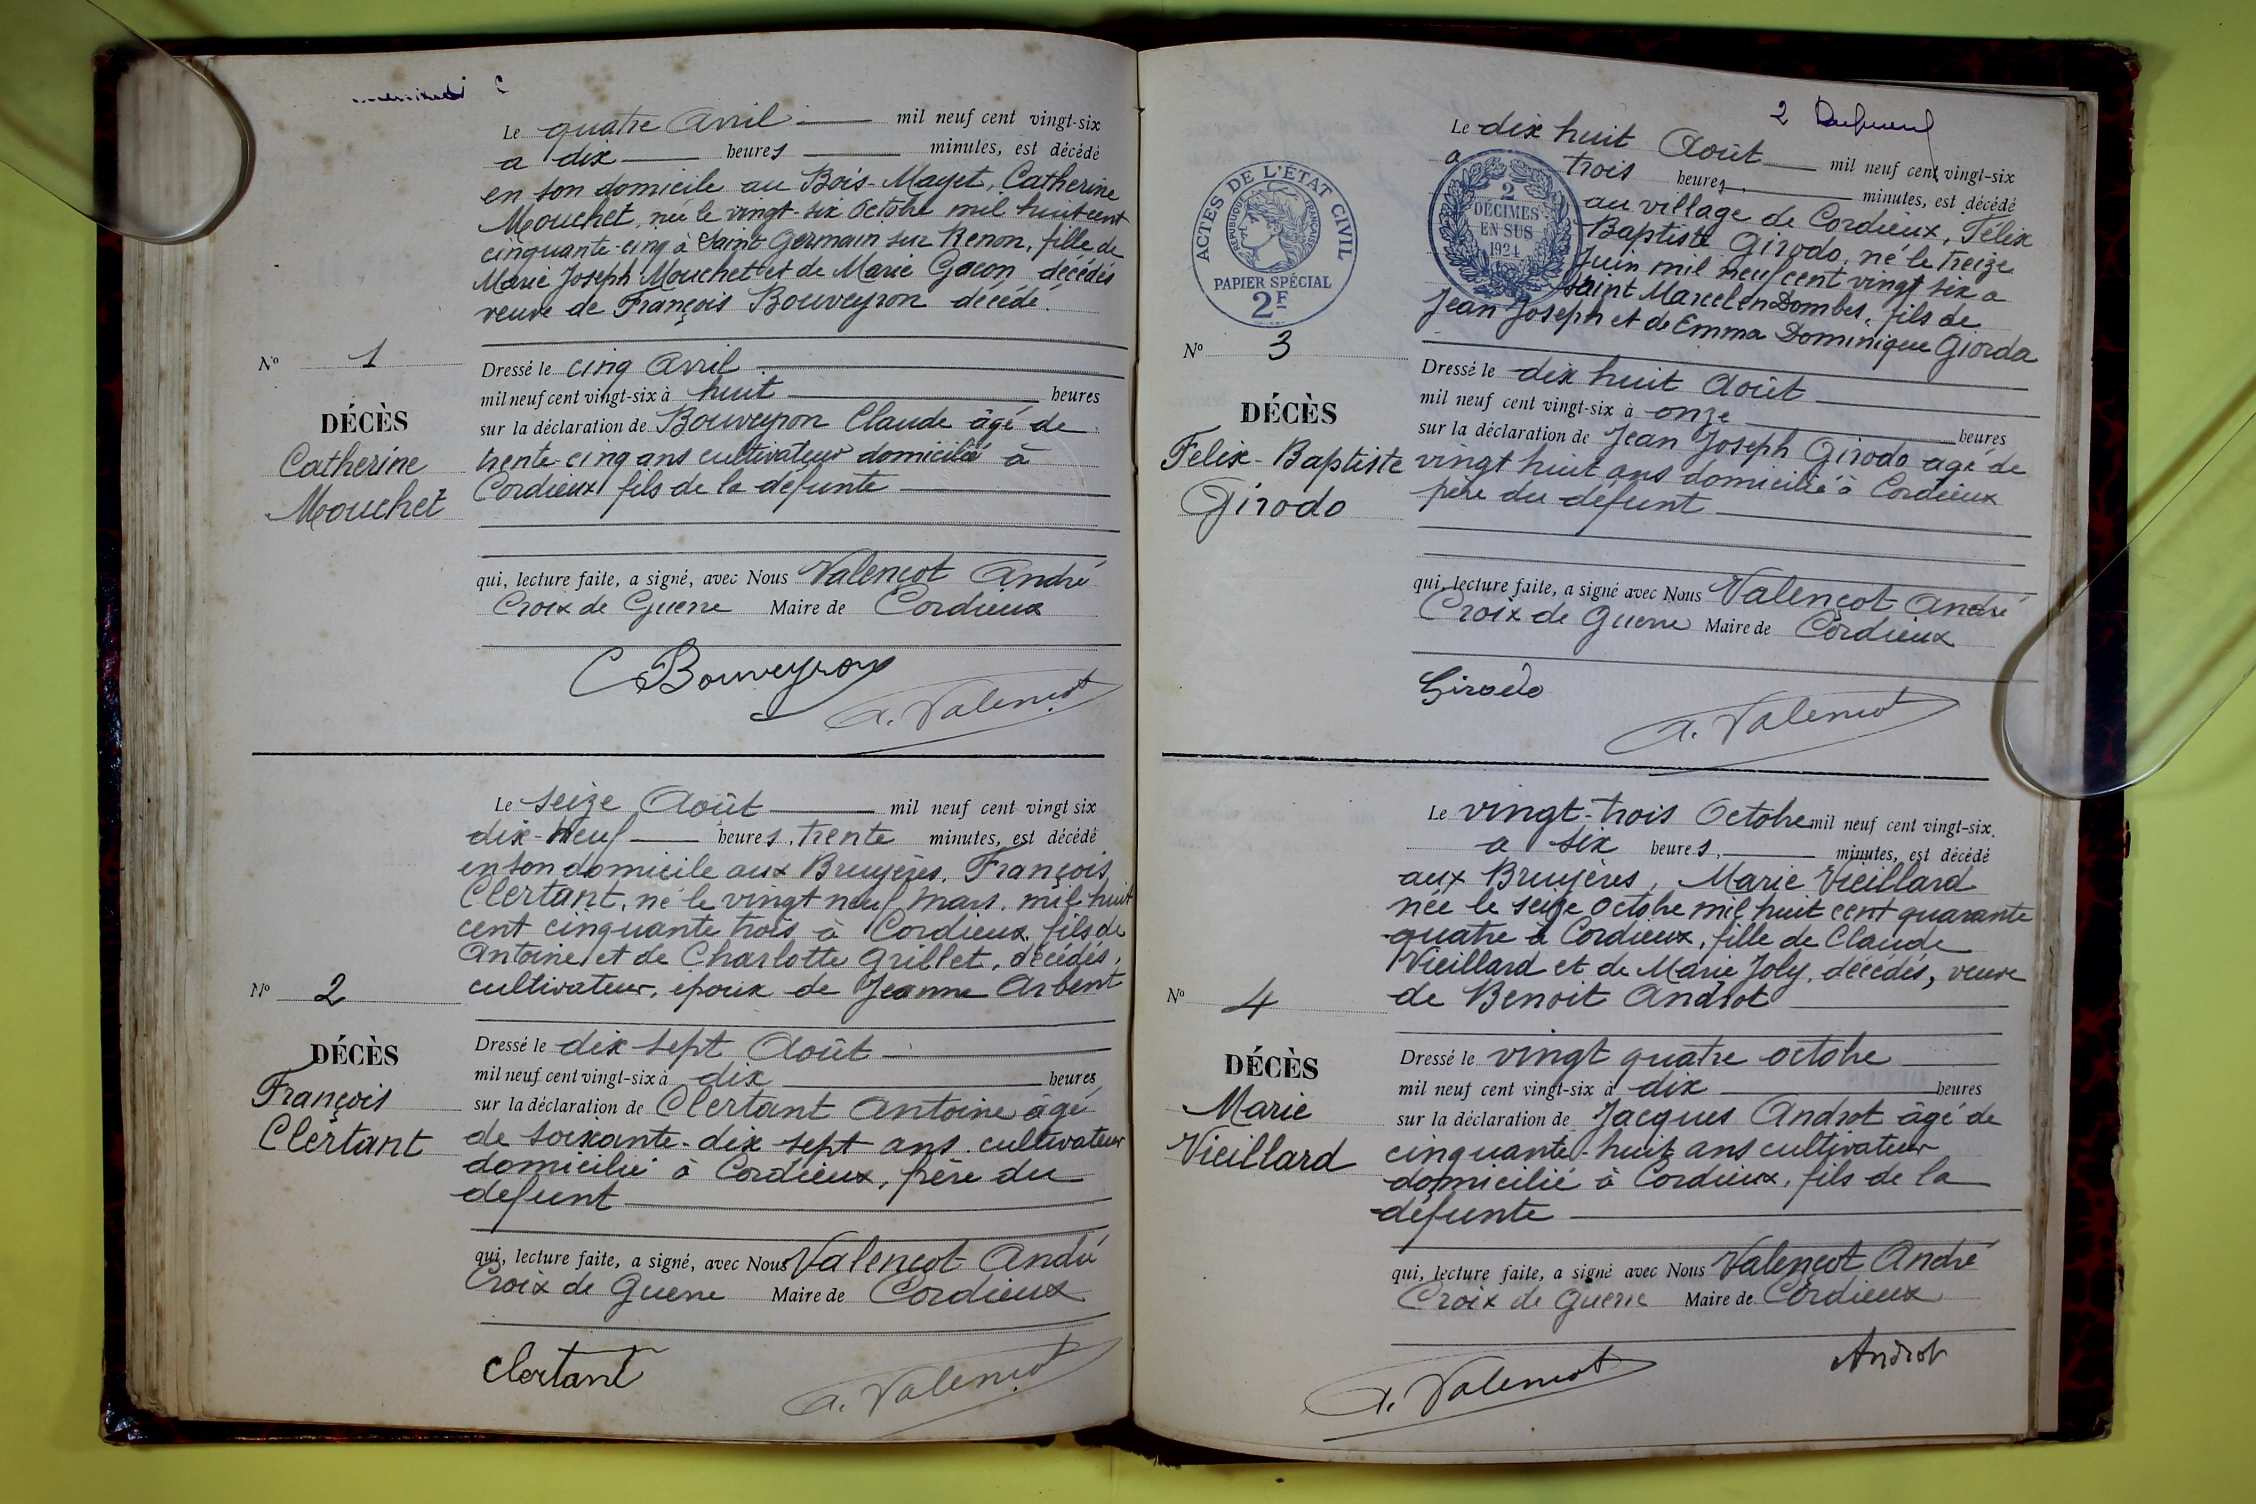 Le quatre Avril mil neuf cent vingt-six
a dix heures minutes, est décédé
en son domicile au Bois-Mayet, Catherine
Mouchet, née le vingt-six Octobre mil huit cent
cinquante-cinq à Saint Germain sur Renon, fille de
Marie Joseph Mouchet et de Marie Gacon décédés
veuve de François Bouveyron décédé.
No 1
DÉCÈS
Catherine
Mouchet
Dressé le cinq Avril
mil neuf cent vingt-six à huit heures
sur la déclaration de Bouveyron Claude âgé de
trente-cinq ans cultivateur domicilié à
Cordieux fils de la défunte
qui, lecture faite, a signé, avec Nous Valençot André
Croix de Guerre Maire de Cordieux
C Bouveyron
A. Valençot
Le seize Août mil neuf cent vingt six
dix-neuf heures, trente minutes, est décédé
en son domicile aux Bruyères, François
Clertant, né le vingt neuf Mars, mil huit
cent cinquante trois à Cordieux, fils de
Antoine et de Charlotte Grillet, décédés,
cultivateur, époux de Jeanne Arbent
No 2
DÉCÈS
François
Clertant
Dressé le dix sept Août
mil neuf cent vingt-six à dix heures
sur la déclaration de Clertant Antoine âgé
de soixante-dix sept ans cultivateur
domicilié à Cordieux, frère du
défunt
qui, lecture faite, a signé, avec Nous Valençot André
Croix de Guerre Maire de Cordieux
Clertant
A. Valençot
2
Le dix huit Août mil neuf cent vingt-six
a trois heures, minutes, est décédé
au village de Cordieux, Félix
Baptiste Girodo, né le treize
Juin mil neuf cent vingt six a
Saint Marcel en Dombes, fils de
Jean Joseph et de Emma Dominique Giorda
ACTES DE L'ÉTAT CIVIL
RÉPUBLIQUE FRANÇAISE
PAPIER SPÉCIAL
2F
2
DÉCIMES
EN SUS
1924
No 3
DÉCÈS
Felix-Baptiste
Girodo
Dressé le dix huit Août
mil neuf cent vingt-six à onze heures
sur la déclaration de Jean Joseph Girodo agé de
vingt huit ans domicilié à Cordieux
père du défunt
qui, lecture faite, a signé avec Nous Valençot André
Croix de Guerre Maire de Cordieux
Girodo
A. Valençot
Le vingt-trois Octobre mil neuf cent vingt-six.
a six heures, minutes, est décédé
aux Bruyères, Marie Vieillard
née le seize octobre mil huit cent quarante
quatre à Cordieux, fille de Claude
Vieillard et de Marie Joly, décédés, veuve
de Benoit Androt
No 4
DÉCÈS
Marie
Vieillard
Dressé le vingt quatre octobre
mil neuf cent vingt-six à dix heures
sur la déclaration de Jacques Androt âgé de
cinquante-huit ans cultivateur
domicilié à Cordieux, fils de la
défunte
qui, lecture faite, a signé avec Nous Valençot André
Croix de Guerre Maire de Cordieux
Androt
A. Valençot